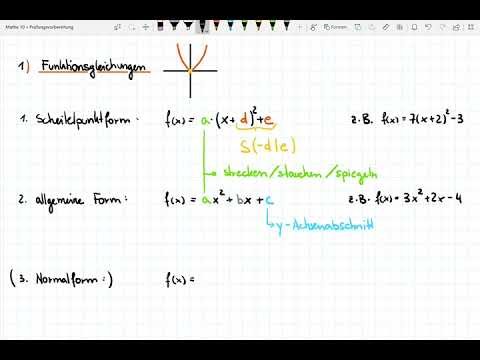 Mathe 10 • Prüfungsvorbereitung
1) Funktionsgleichungen
1. Scheitelpunktform: f(x) = a·(x+d)²+e z.B. f(x) = 7(x+2)²-3
S(-d|e)
strecken/stauchen/spiegeln
2. allgemeine Form: f(x) = ax²+bx+c z.B. f(x) = 3x²+2x-4
y-Achsenabschnitt
(3. Normalform:) f(x) =